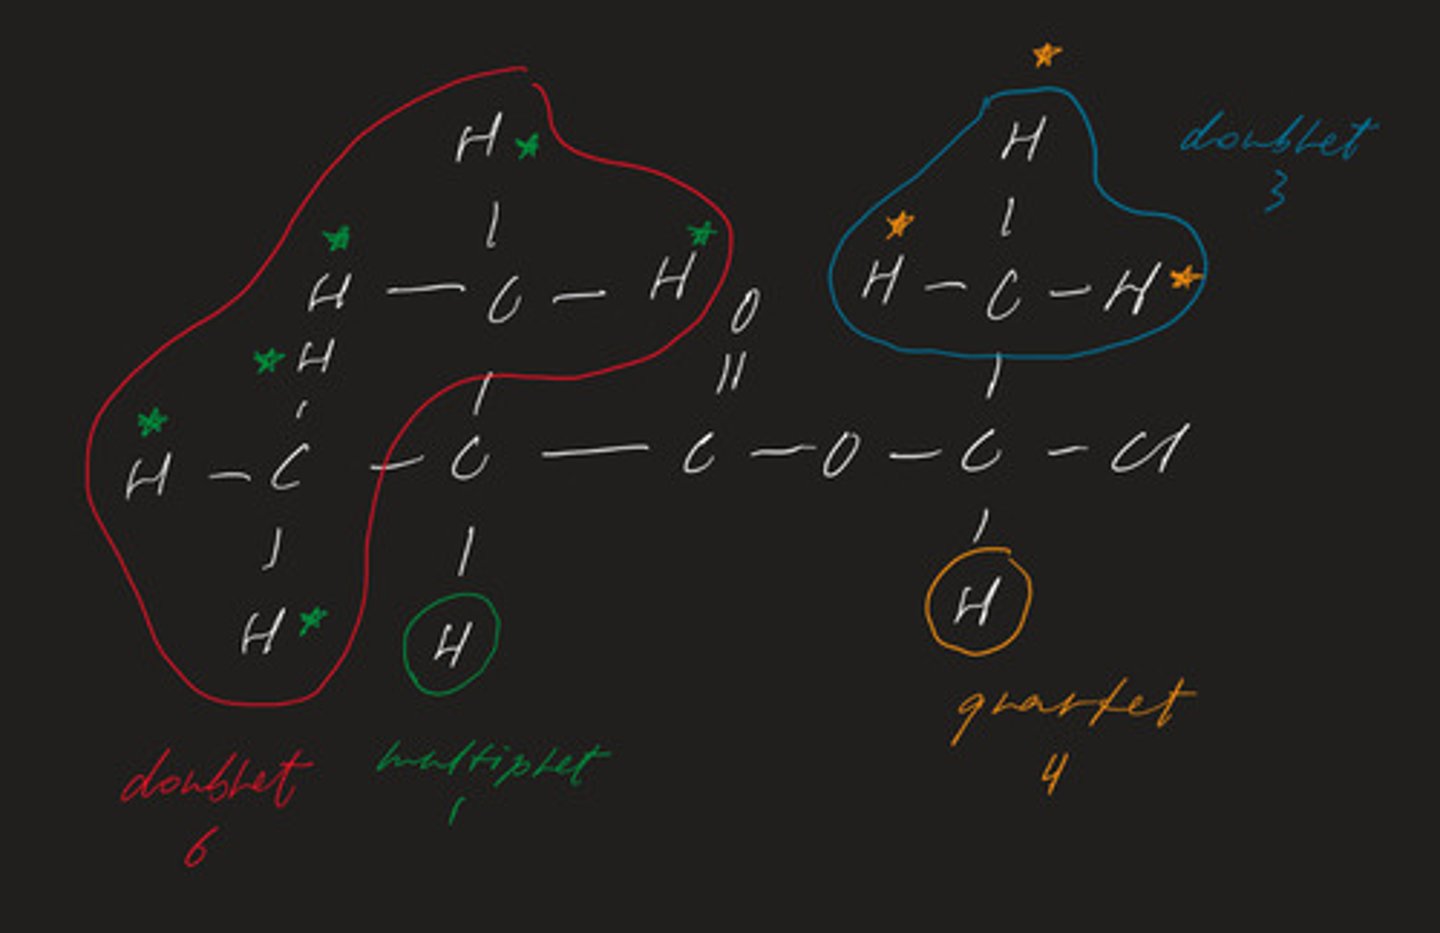 H
H
doublet
3
H — C — H
O
H — C — H
H
H — C — C — C — O — C — Cl
H
H
H
quartet
doublet
multiplet
4
1
6